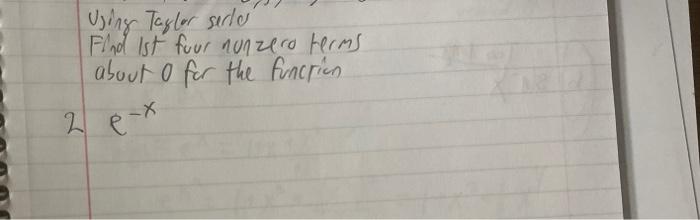 Using Taylor series
Find 1st four nonzero terms
about 0 for the function
2 e^-x